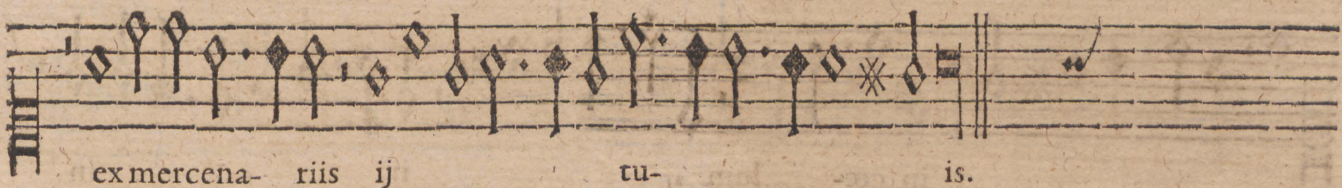 ex mercena- riis ij tu- is.